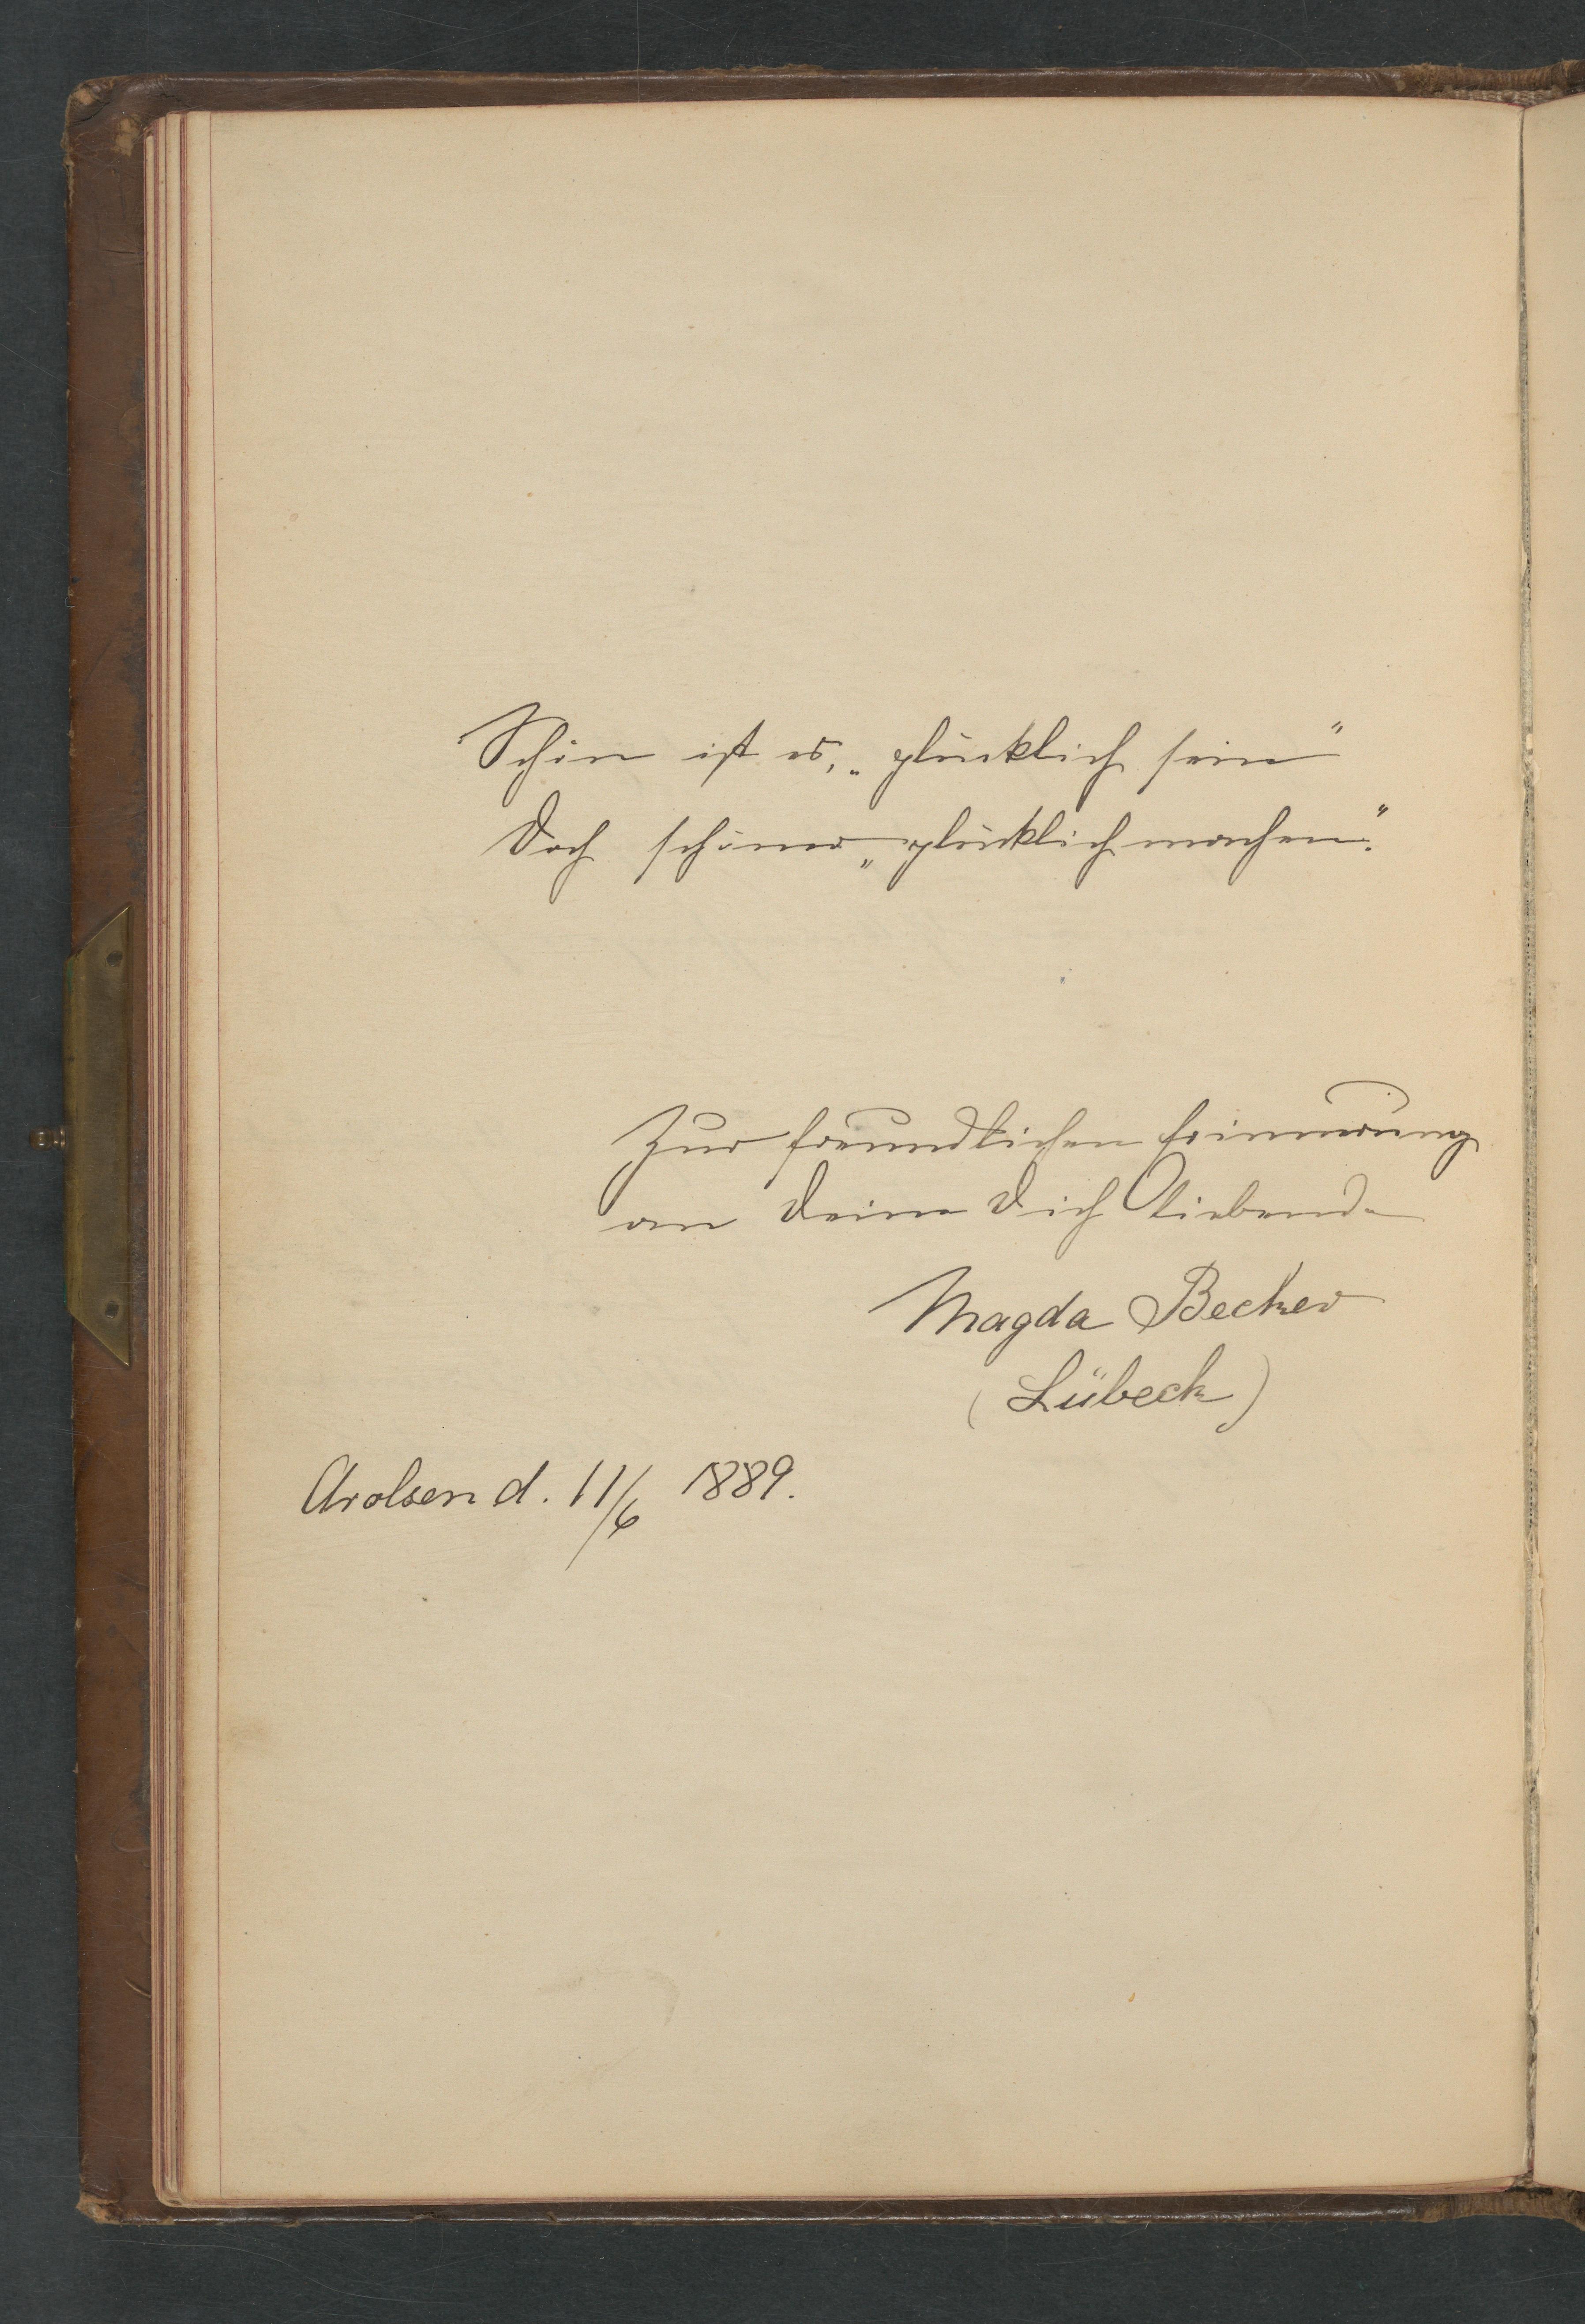 Schön ist es, „glücklich sein"
Doch schöner „glücklich machen."
Zur freundlichen Erinnerung
an Deine Dich liebende
Magda Becker
(Lübeck)
Arolsen d. 11/6 1889.